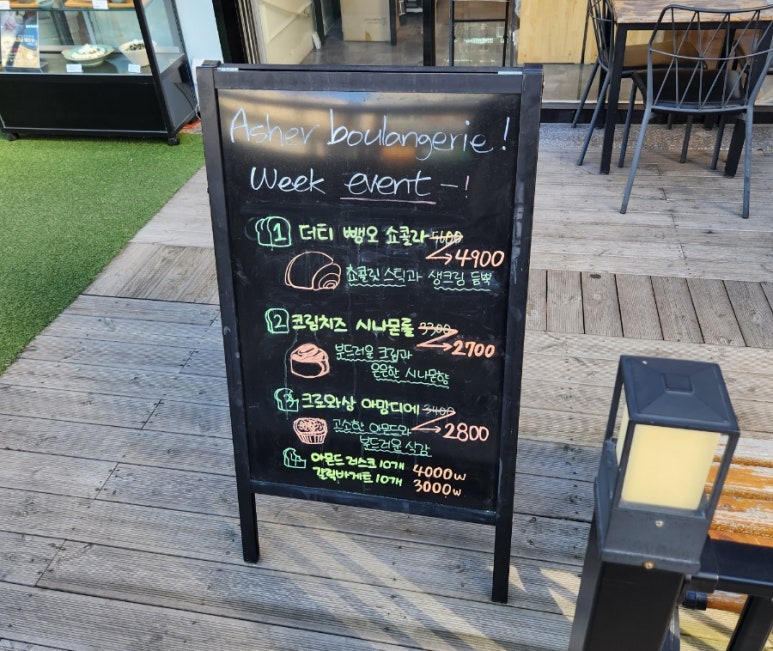 Asher boulangerie!
Week event-!
1 더티 뺑오 쇼콜라 5600
→4900
쵸콜릿 스틱과 생크림 듬뿍
2 크림치즈 시나몬롤 3300
→2700
부드러운 크림과
은은한 시나몬향
3 크로와상 아망디에 3400
→2800
고소한 아몬드와
부드러운 식감
4 아몬드 러스크 10개 4000w
갈릭바게트 10개 3000w